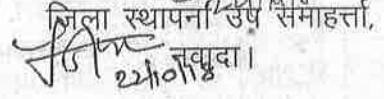 जिला स्थापना उप समाहर्त्ता,
नवादा।
22/10/18